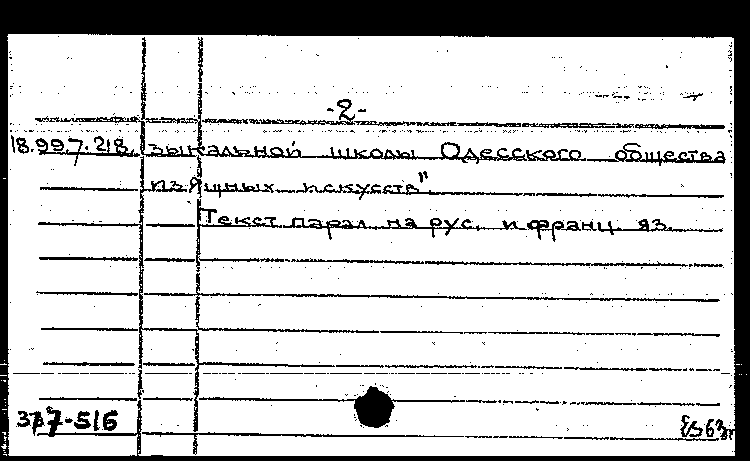 -2-
18.99.7.218. зыкальной школы Одесского общества
изящных искусств".
Текст парал. на рус. и франц. яз.
37-516